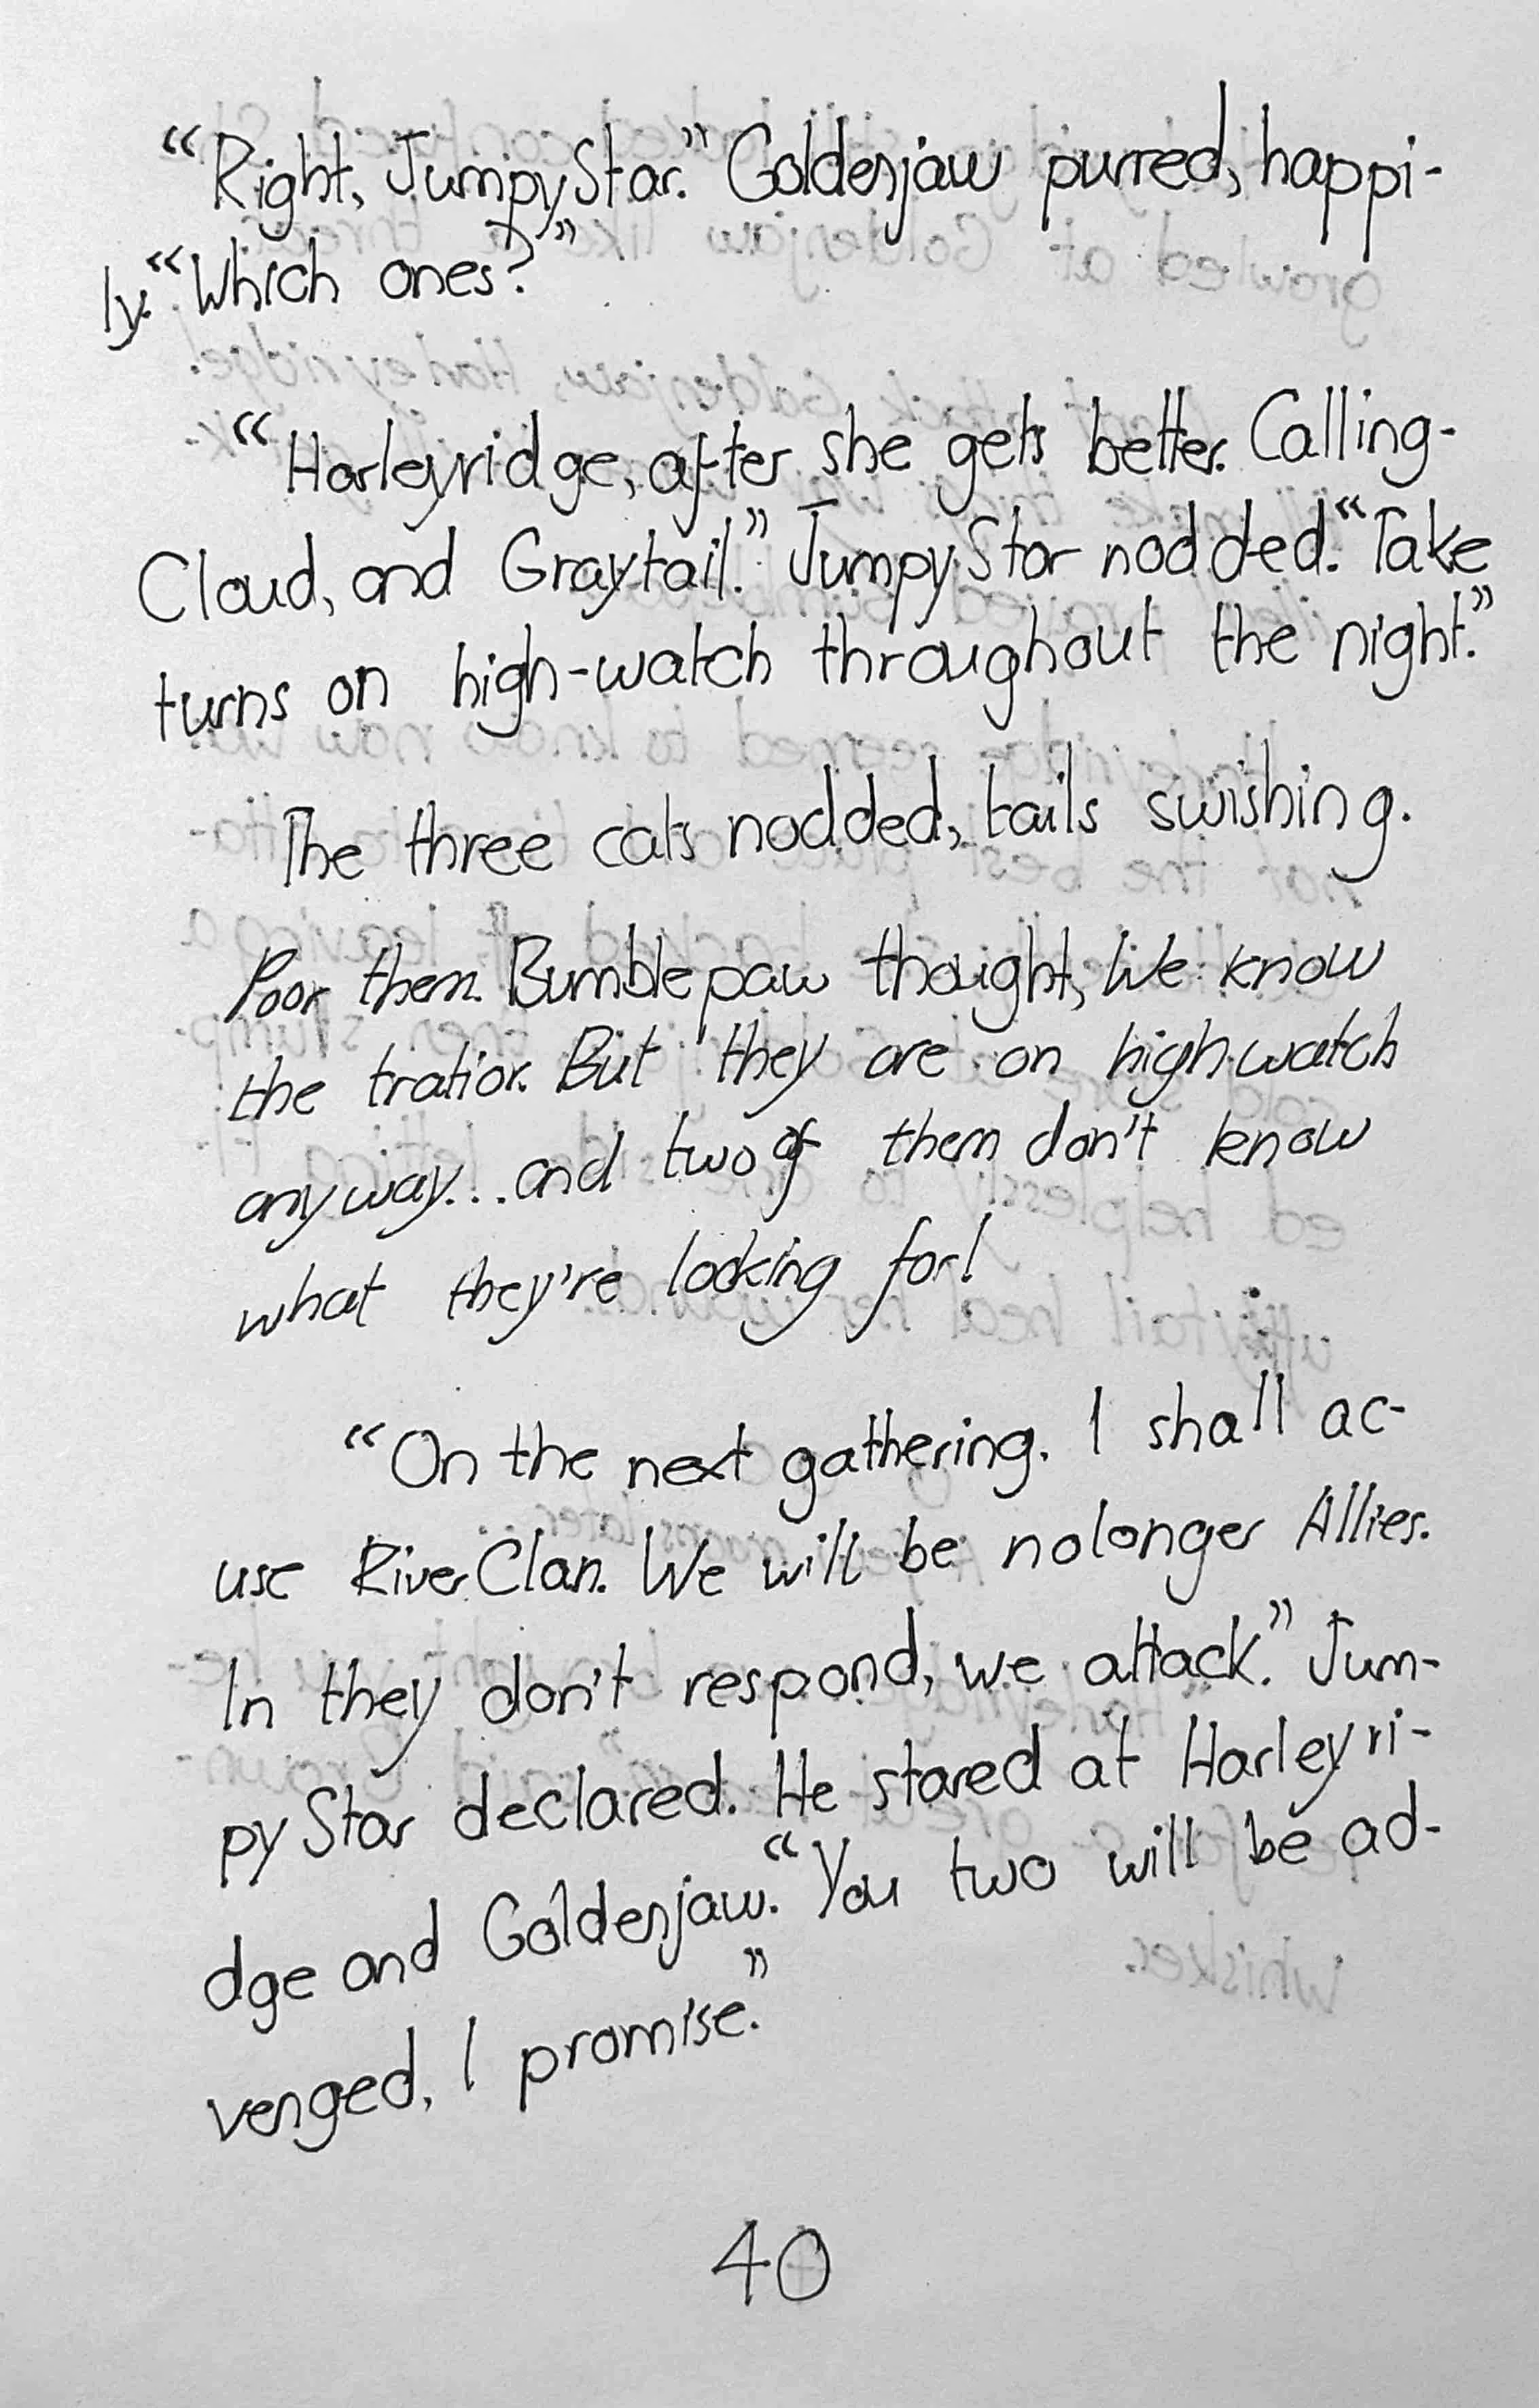 “Right, JumpyStar.” Goldenjaw purred, happi-
ly. “Which ones?”
“Harleyridge, after she gets better. Calling-
Cloud, and Graytail.” JumpyStar nodded. “Take
turns on high-watch throughout the night.”
The three cats nodded, tails swishing.
Poor them. Bumblepaw thought, We know
the tratior. But they are on high-watch
anyway...and two of them don't know
what they're looking for!
“On the next gathering. I shall ac-
use RiverClan. We will be nolonger Allies.
In they don't respond, we attack.” Jum-
pyStar declared. He stared at Harleyri-
dge and Goldenjaw. “You two will be ad-
venged, I promise.”
40